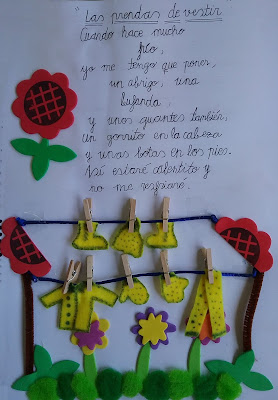 "Las prendas de vestir
Cuando hace mucho
frío,
yo me tengo que poner,
un abrigo, una
bufanda,
y unos guantes también,
un gorrito en la cabeza
y unas botas en los pies.
Así estaré calentito y
no me resfriaré.